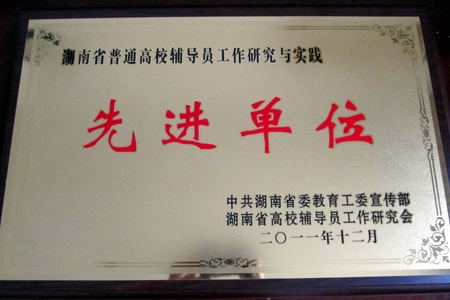 湖南省普通高校辅导员工作研究与实践
先进单位
中共湖南省委教育工委宣传部
湖南省高校辅导员工作研究会
二〇一一年十二月